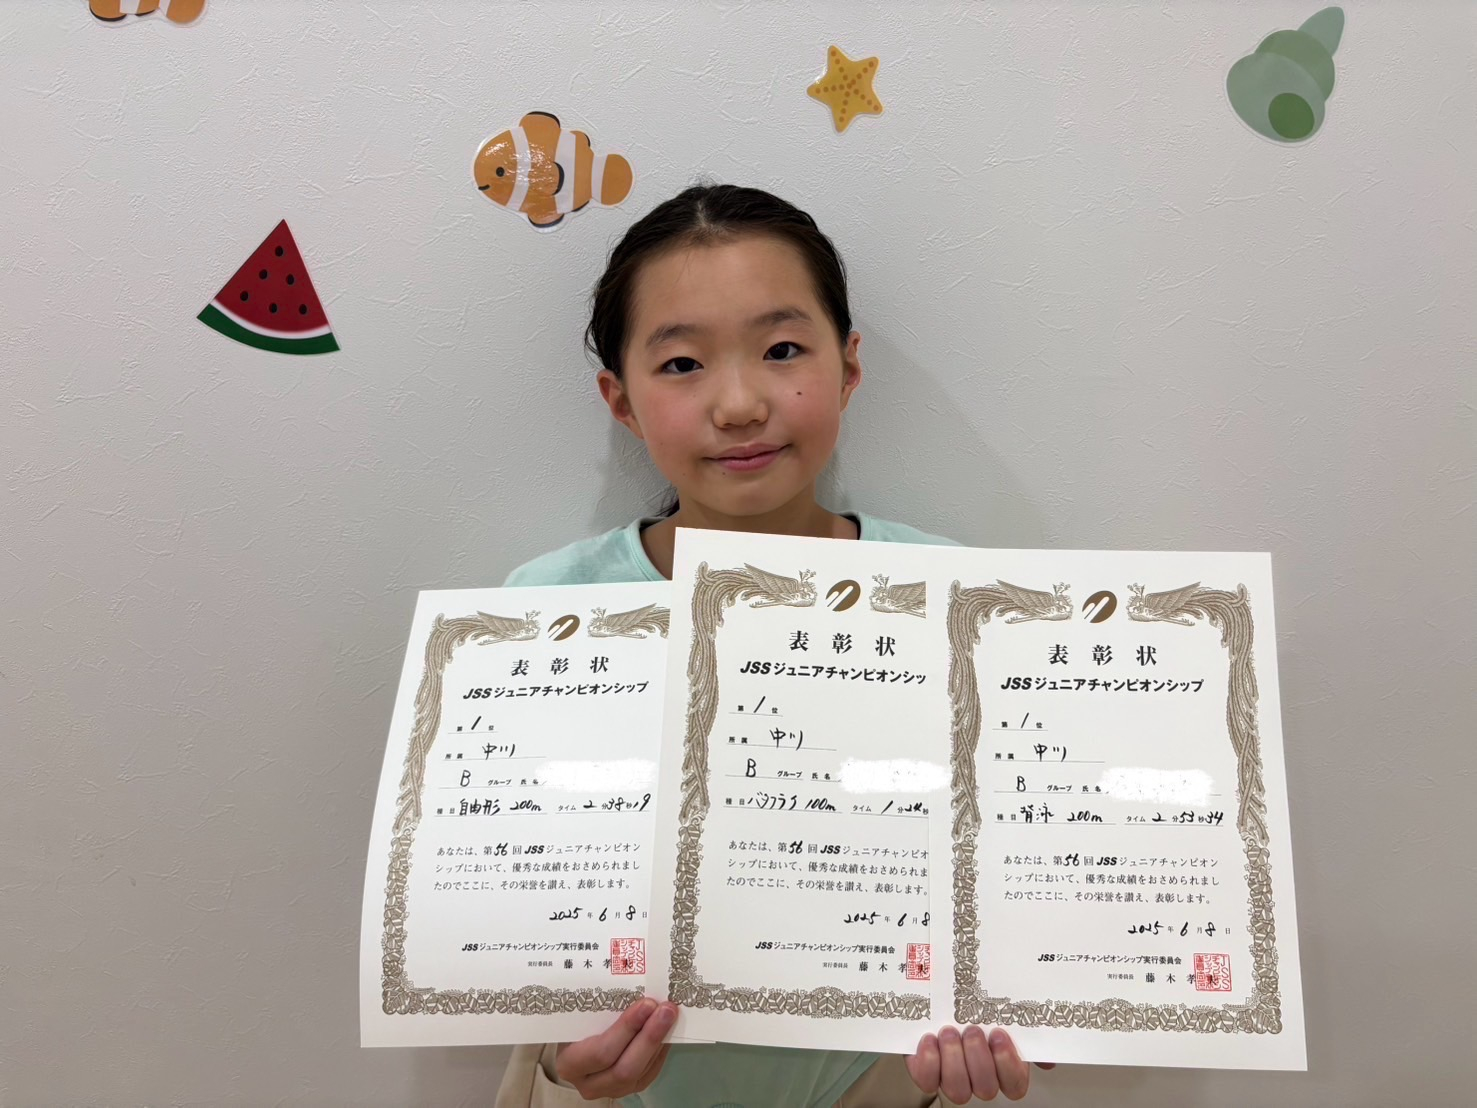 表彰状
JSSジュニアチャンピオンシップ
第 1 位
所属 中川
B グループ 氏名
種目 自由形 200m タイム 2分38秒19
あなたは、第56回JSSジュニアチャンピオン
シップにおいて、優秀な成績をおさめられまし
たのでここに、その栄誉を讃え、表彰します。
2025年6月8日
JSSジュニアチャンピオンシップ実行委員会
実行委員長 藤木孝
表彰状
JSSジュニアチャンピオンシッ
第 1 位
所属 中川
B グループ 氏名
種目 バタフライ 100m タイム 1分24
あなたは、第56回JSSジュニアチャ
シップにおいて、優秀な成績をおさめられま
たのでここに、その栄誉を讃え、表彰します。
2025年6月8
JSSジュニアチャンピオンシップ実行委員会
実行委員長 藤木孝
表彰状
JSSジュニアチャンピオンシップ
第 1 位
所属 中川
B グループ 氏名
種目 背泳 200m タイム 2分53秒34
あなたは、第56回JSSジュニアチャンピオン
シップにおいて、優秀な成績をおさめられまし
たのでここに、その栄誉を讃え、表彰します。
2025年6月8日
JSSジュニアチャンピオンシップ実行委員会
実行委員長 藤木孝